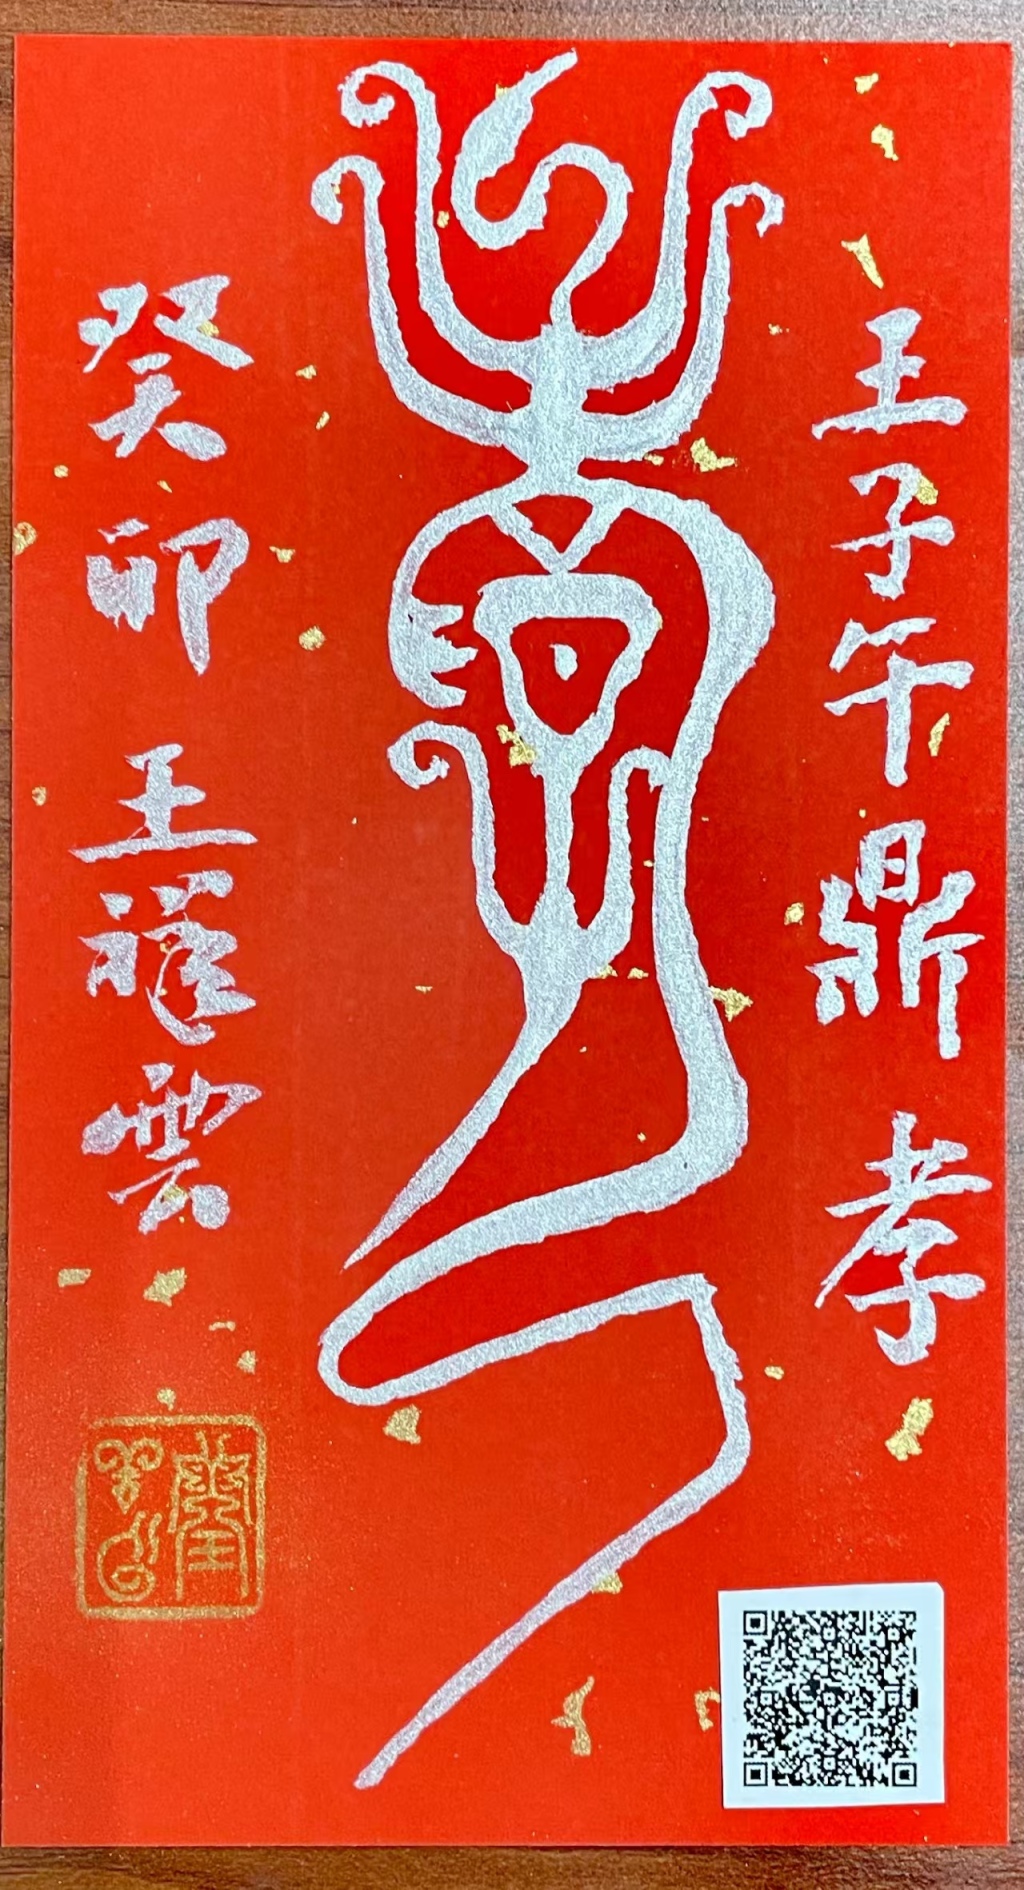 王子午鼎 孝
孝
癸卯 王祥雲